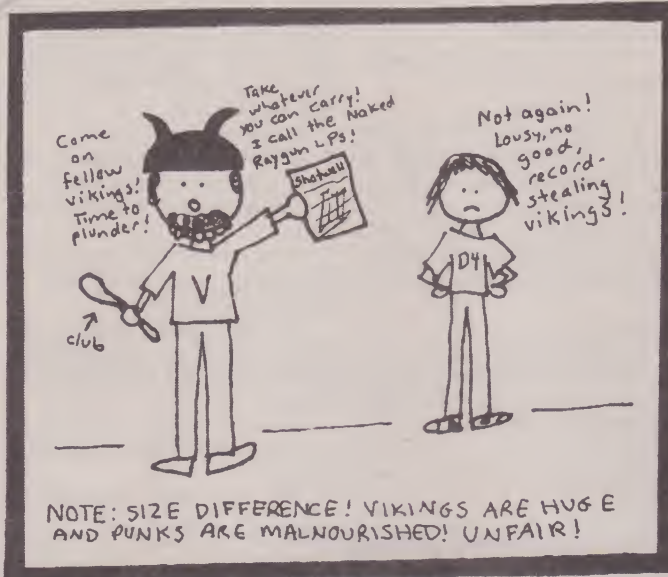 Come
on
fellow
vikings!
Time to
plunder!
Take
whatever
you can carry!
I call the Naked
Raygun LPs!
Shotwell
club
V
Not again!
Lousy, no
good,
record-
stealing
vikings!
D4
NOTE: SIZE DIFFERENCE! VIKINGS ARE HUGE
AND PUNKS ARE MALNOURISHED! UNFAIR!